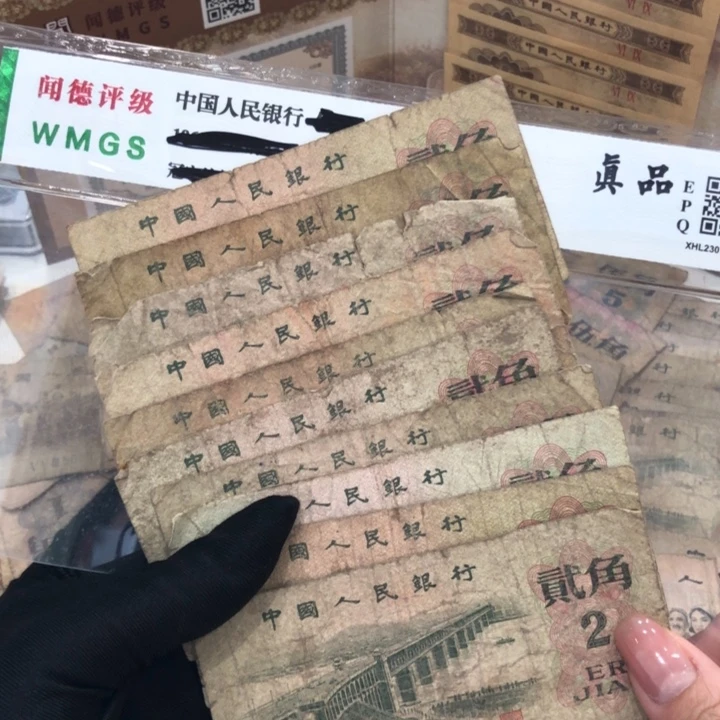 闻德评级
WMGS
中国人民银行
真品
EPQ
XHL230
中國人民銀行
贰角
中國人民銀行
贰角
中國人民銀行
贰角
中國人民銀行
贰角
中國人民銀行
中國人民銀行
貳角
中國人民銀行
人民銀行
贰角
國人民銀行
中國人民銀行
貳角
2
ER
JIA
闻德评级
MGS
中国人民银行
中国人民银行
中国人民银行
5
伍角